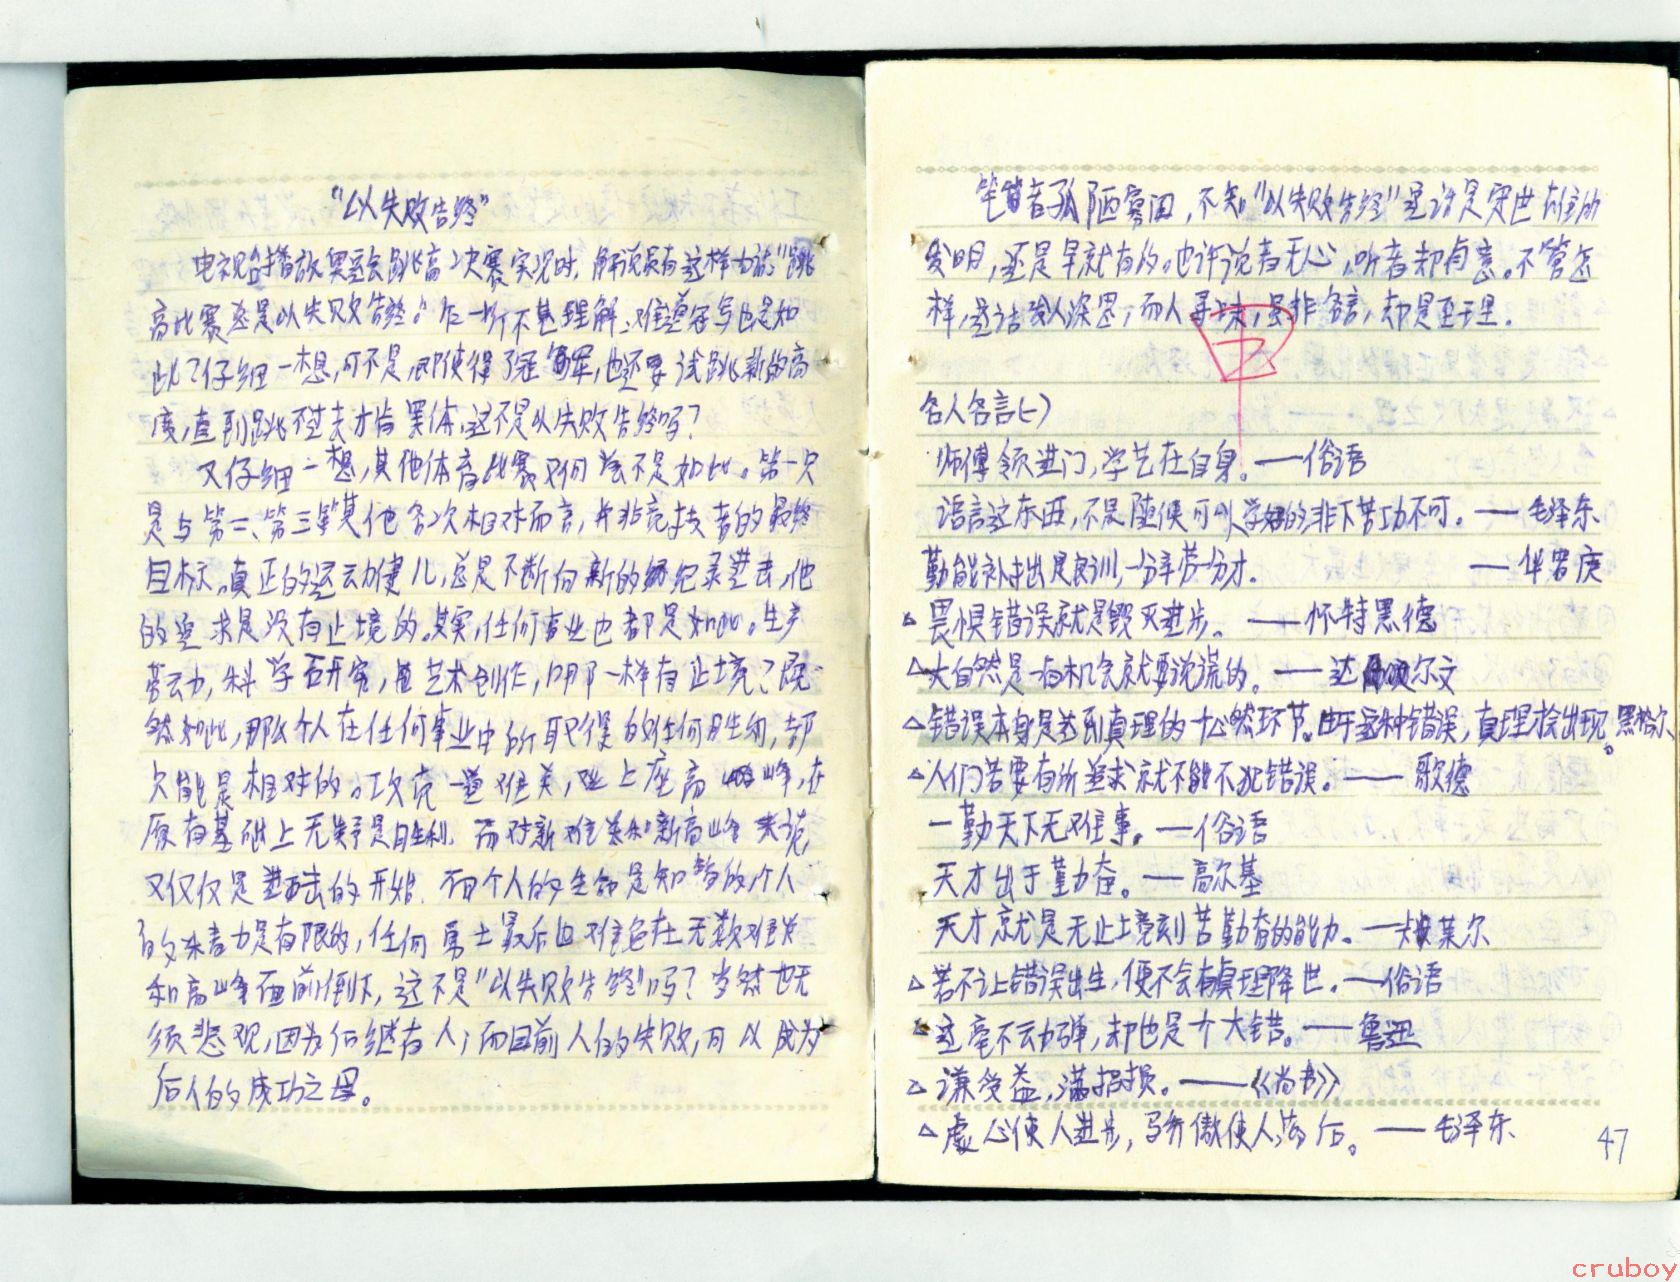 “以失败告终”
电视台播放奥运会跳高决赛实况时，解说员有这样的话：“跳
高比赛总是以失败告终。”乍一听不甚理解，难道冠军也是如
此？仔细一想，可不是，即使得了冠军，也还要试跳新的高
度，直到跳不过去才肯罢休，这不是以失败告终吗？
又仔细一想，其他体育比赛又何尝不是如此。第一只
是与第二、第三等其他名次相对而言，并非竞技者的最终
目标。真正的运动健儿，总是不断向新的纪录进击，他
的追求是没有止境的。其实，任何事业也都是如此。生产
劳动，科学研究，艺术创作，哪一样有止境？既
然如此，那么个人在任何事业中所取得的任何胜利，都
只能是相对的。攻克一道难关，登上座高峰，在
原有基础上无疑是胜利，而对新难关和新高峰来说，
又仅仅是进击的开始。而个人的生命是短暂的，个人
的才力是有限的，任何勇士最后也难免在无数难关
和高峰面前倒下，这不是“以失败告终”吗？当然也无
须悲观，因为后继有人；而且前人的失败，可以成为
后人的成功之母。
笔者孤陋寡闻，不知“以失败告终”这话是宋世雄的
发明，还是早就有的。也许说者无心，听者却有意。不管怎
样，这话发人深思，耐人寻味，虽非名言，却是至理。
名人名言(一)
师傅领进门，学艺在自身。——俗语
语言这东西，不是随便可以学好的，非下苦功不可。——毛泽东
勤能补拙是良训，一分辛劳一分才。 ——华罗庚
△畏惧错误就是毁灭进步。——怀特黑德
△大自然是一有机会就要说谎的。——达尔文
△错误本身是达到真理的一个必然环节。由于这种错误，真理才会出现。黑格尔
△人们若要有所追求就不能不犯错误。——歌德
一勤天下无难事。——俗语
天才出于勤奋。——高尔基
天才就是无止境刻苦勤奋的能力。——卡莱尔
△若不让错误出生，便不会有真理降世。——俗语
△这毫不动弹，却也是个大错。——鲁迅
△谦受益，满招损。——《尚书》
△虚心使人进步，骄傲使人落后。——毛泽东
47
cruboy